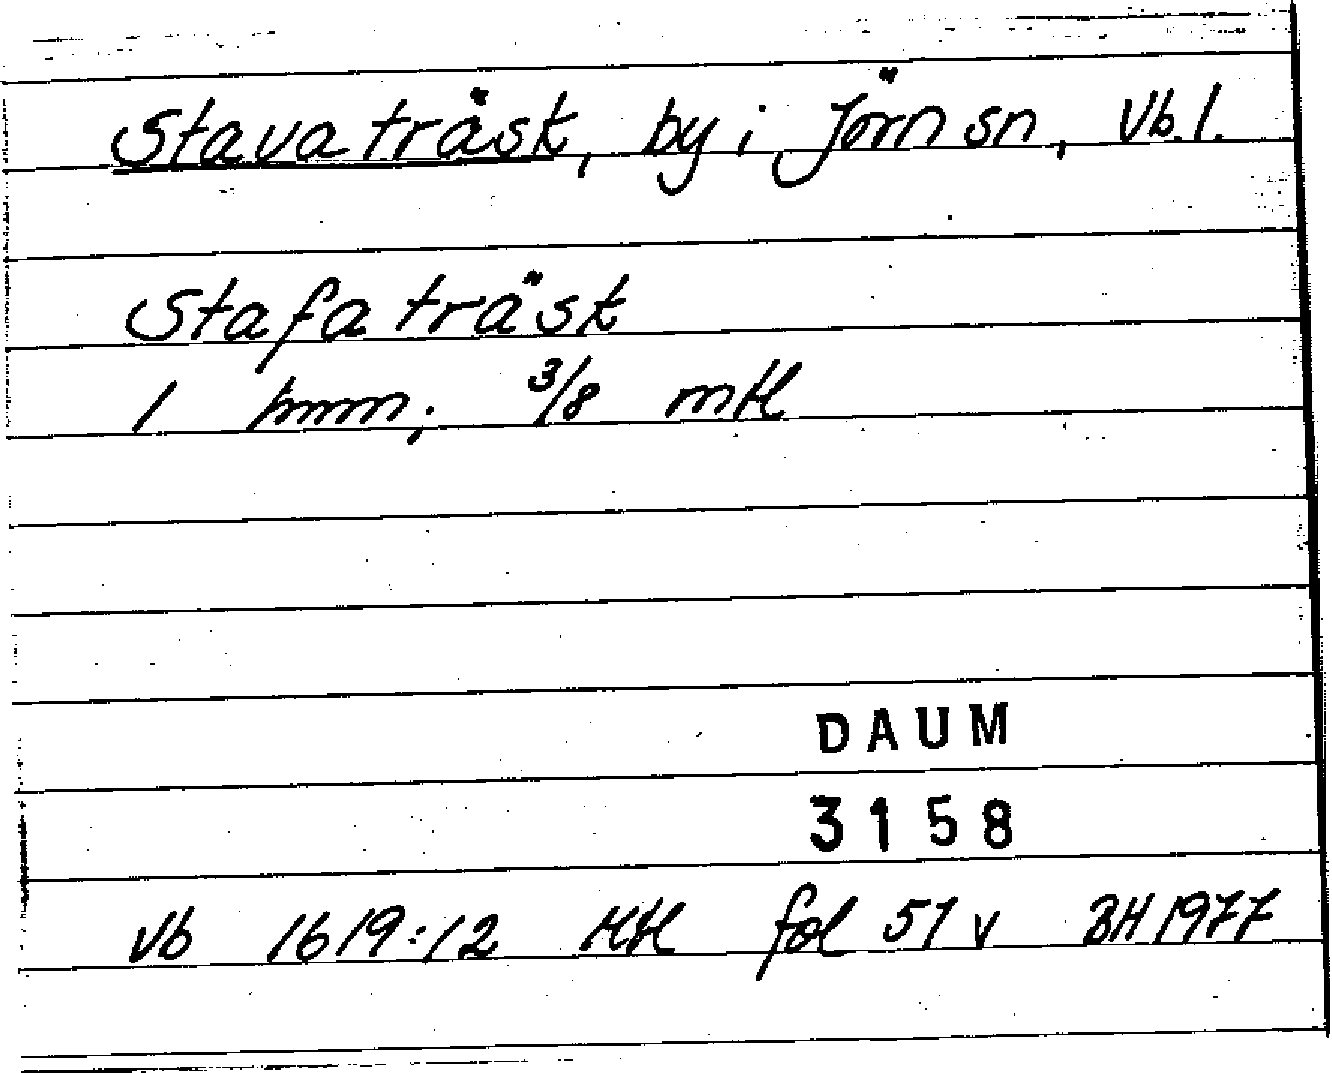 Stavaträsk, by i Jörn sn, Vb.l.
Stafaträsk
1 hmm; 3/8 mtl
DAUM
3158
Vb 1619:12 Mtl fol 51 v BH 1977